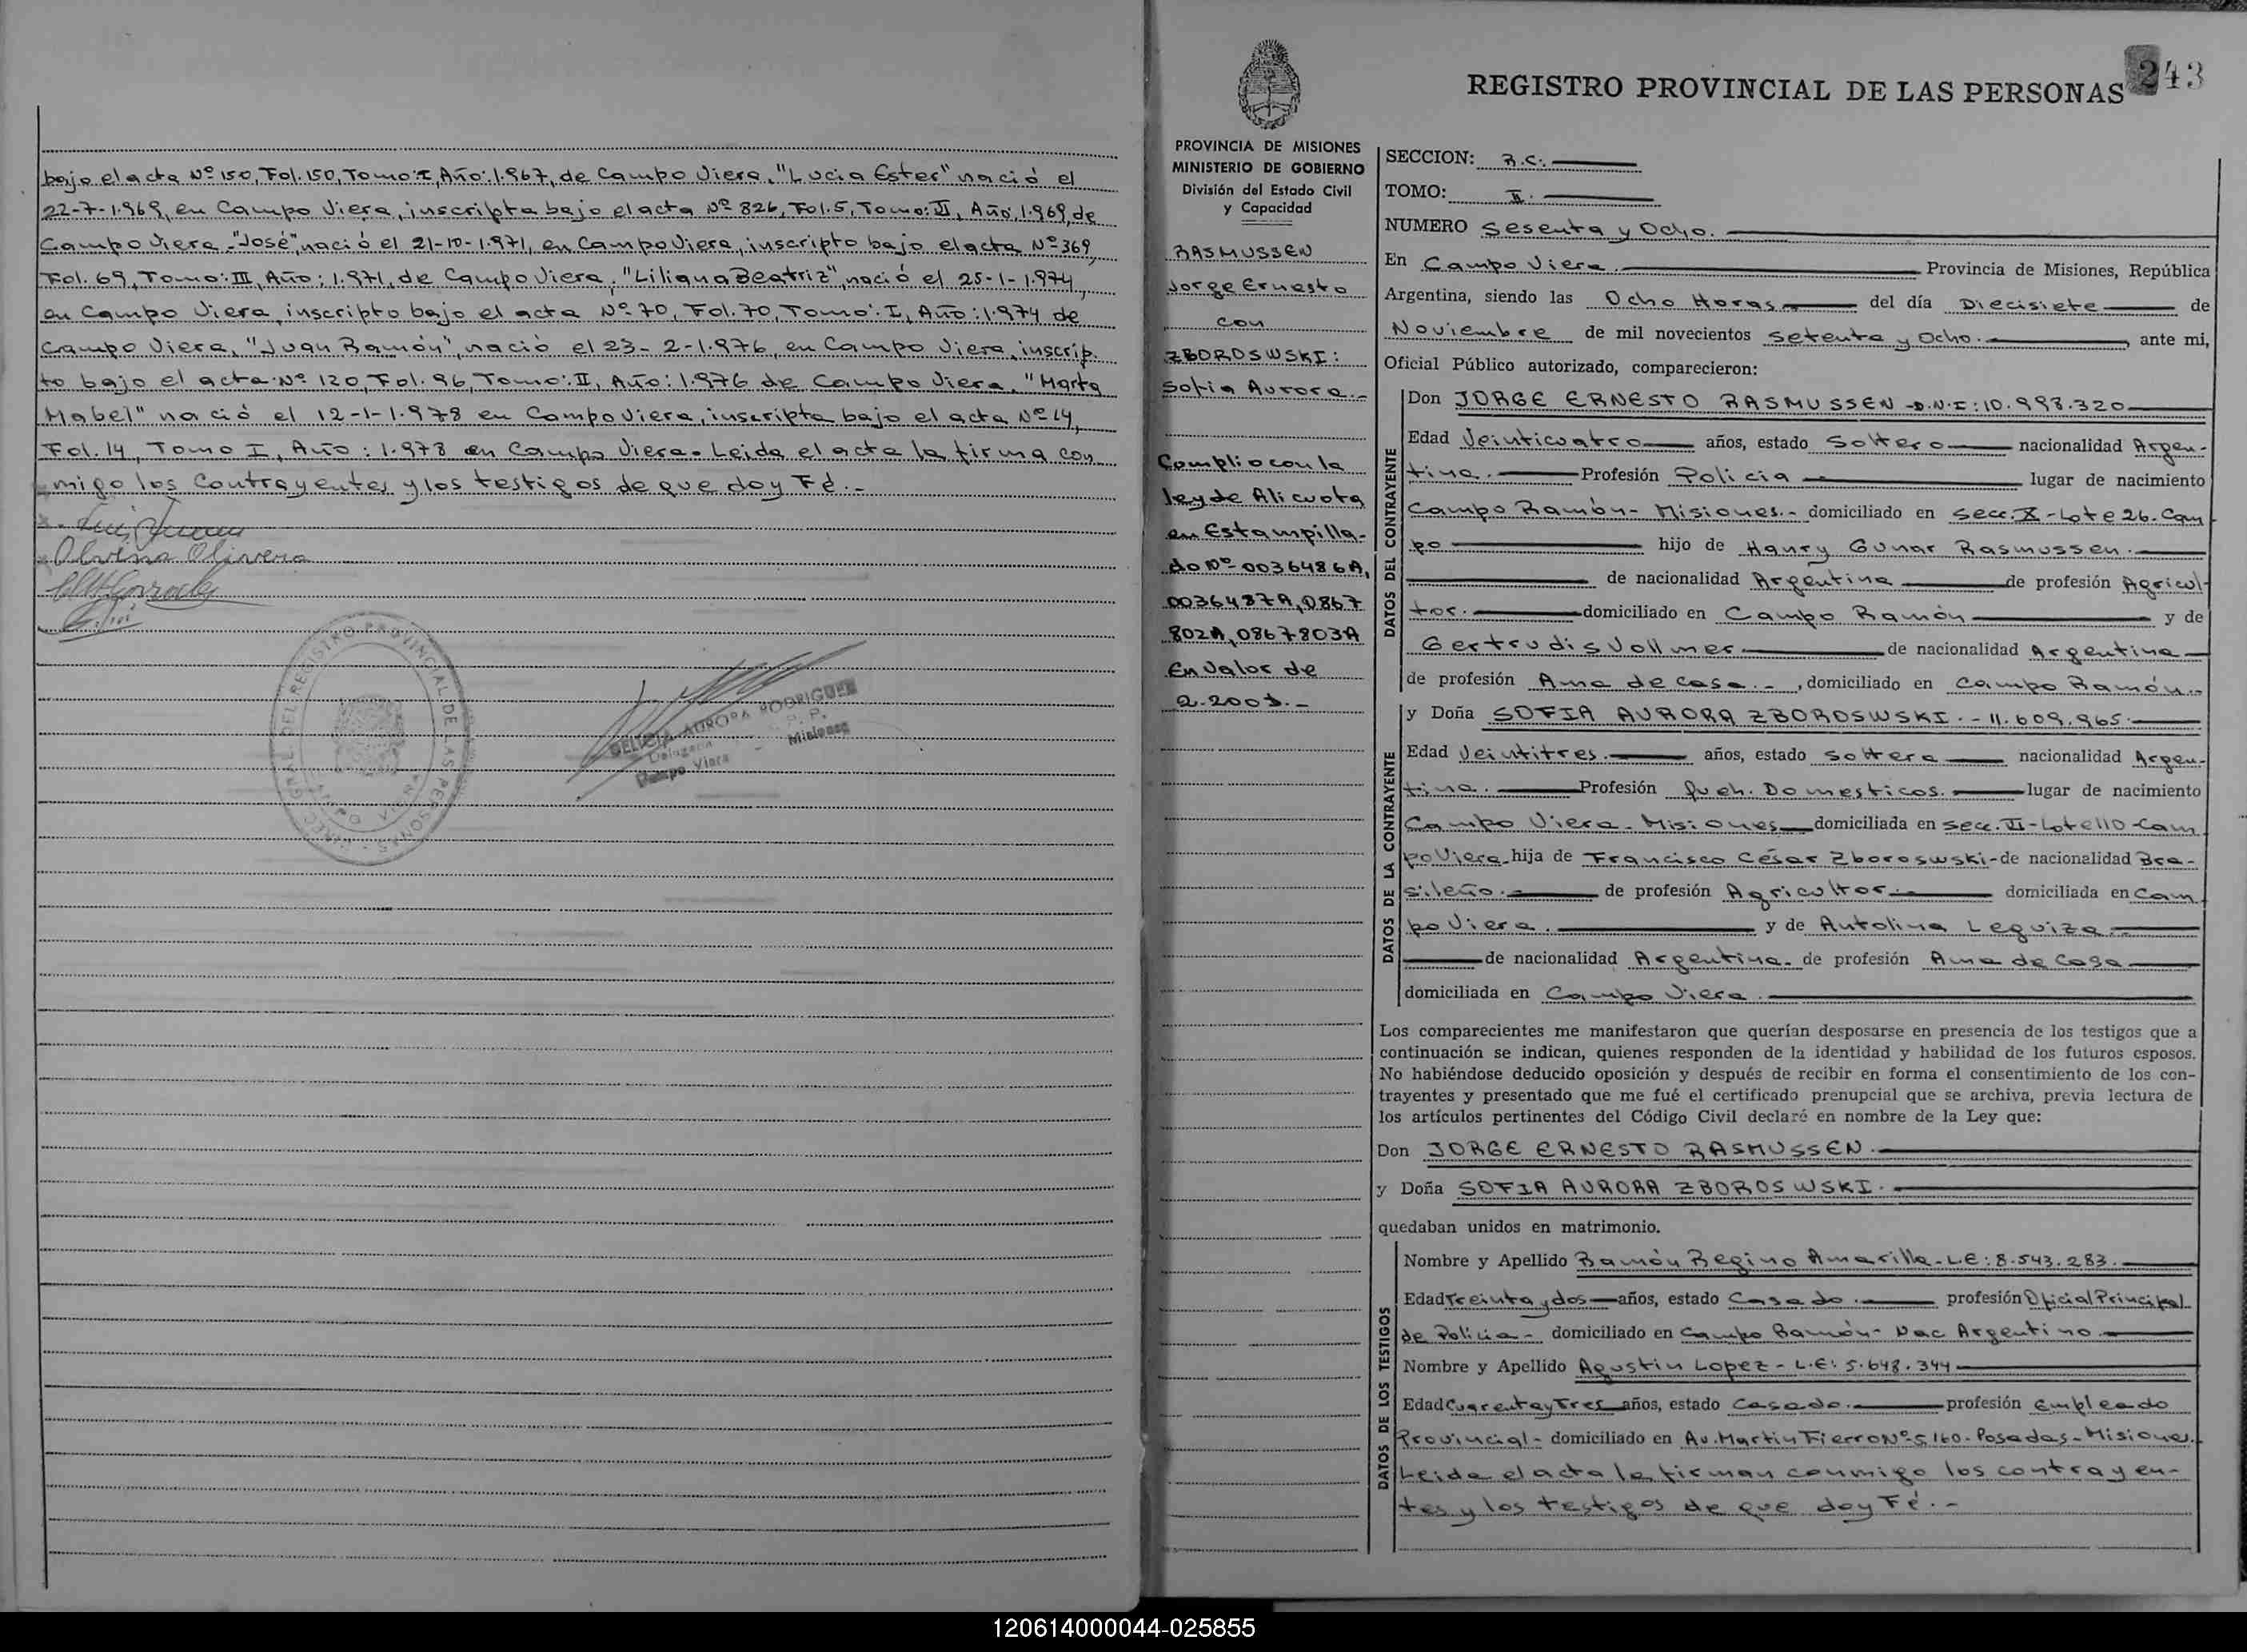 bajo el acta Nº 150, Fol. 150, Tomo: I, Año: 1.967, de Campo Viera, "Lucia Ester" nació el
22-7-1.969, en Campo Viera, inscripta bajo el acta Nº 826, Fol. 5, Tomo: VI, Año, 1.969, de
Campo Viera.-"José", nació el 21-10-1.971, en Campo Viera, inscripto bajo el acta Nº 369,
Fol. 69, Tomo: III, Año: 1.971, de Campo Viera, "Liliana Beatriz", nació el 25-1-1.974,
en Campo Viera, inscripto bajo el acta Nº 70, Fol. 70, Tomo: I, Año: 1.974 de
Campo Viera, "Juan Ramón", nació el 23-2-1.976, en Campo Viera, inscrip.
to bajo el acta Nº 120, Fol. 96, Tomo: II, Año: 1.976 de Campo Viera. "Marta
Mabel" nació el 12-1-1.978 en Campo Viera, inscripta bajo el acta Nº 14,
Fol. 14, Tomo I, Año: 1.978 en Campo Viera. Leida el acta la firma con
migo los Contrayentes y los testigos de que doy Fé.-
Olivera
DIREC. GRAL. DEL REGISTRO PROVINCIAL DE LAS PERSONAS
DELICIA AURORA RODRIGUEZ
Delegada
Campo Viera
Misiones
243
REGISTRO PROVINCIAL DE LAS PERSONAS
PROVINCIA DE MISIONES
MINISTERIO DE GOBIERNO
División del Estado Civil
y Capacidad
RASMUSSEN
Jorge Ernesto
con
ZBOROSWSKI:
Sofia Aurora.-
Complio con la
ley de Alicuota
en Estampilla-
do Nº-0036486A,
0036487A, 0867
802A, 0867803A
En Valor de
2.200$.-
SECCION: R.C.
TOMO: II.
NUMERO Sesenta y Ocho.
En Campo Viera. Provincia de Misiones, República
Argentina, siendo las Ocho Horas del día Diecisiete de
Noviembre de mil novecientos setenta y Ocho. , ante mi,
Oficial Público autorizado, comparecieron:
DATOS DEL CONTRAYENTE
Don JORGE ERNESTO RASMUSSEN -D.N.I: 10.998.320
Edad Veinticuatro años, estado Soltero nacionalidad Argen-
tina. Profesión Policia lugar de nacimiento
Campo Ramón- Misiones.- domiciliado en Secc. X - Lote 26. Cam
po hijo de Hanry Gunar Rasmussen.
de nacionalidad Argentina de profesión Agricul-
tor. domiciliado en Campo Ramón y de
Gertrudis Vollmer de nacionalidad Argentina
de profesión Ama de casa.- , domiciliado en Campo Ramón.-
DATOS DE LA CONTRAYENTE
y Doña SOFIA AURORA ZBOROSWSKI.- 11.609.965.
Edad Veintitres. años, estado Soltera nacionalidad Argen-
tina. Profesión Queh. Domesticos. lugar de nacimiento
Campo Viera- Misiones domiciliada en Secc. VI-Lote 110-Cam
po Viera hija de Francisco César Zboroswski- de nacionalidad Bra-
sileño.- de profesión Agricultor.- domiciliada en Cam
po Viera. y de Antolina Leguiza.
de nacionalidad Argentina. de profesión Ama de Casa
domiciliada en Campo Viera.
Los comparecientes me manifestaron que querían desposarse en presencia de los testigos que a
continuación se indican, quienes responden de la identidad y habilidad de los futuros esposos.
No habiéndose deducido oposición y después de recibir en forma el consentimiento de los con-
trayentes y presentado que me fué el certificado prenupcial que se archiva, previa lectura de
los artículos pertinentes del Código Civil declaré en nombre de la Ley que:
Don JORGE ERNESTO RASMUSSEN.
y Doña SOFIA AURORA ZBOROSWSKI.
quedaban unidos en matrimonio.
DATOS DE LOS TESTIGOS
Nombre y Apellido Ramón Regino Amarilla- L.E: 8.543.283.
Edad Treinta y dos años, estado Casado. profesión Oficial Principal
de Policia- domiciliado en Campo Ramón- Nac Argentino.
Nombre y Apellido Agustin Lopez- L.E: 5.648.344
Edad Cuarenta y Tres años, estado Casado. profesión Empleado
Provincial- domiciliado en Av. Martin Fierro Nº 5160. Posadas- Misiones.
Leida el acta la firman conmigo los contrayen-
tes y los testigos de que doy Fé.-
120614000044-025855